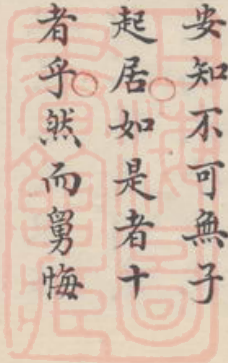 安知不可無子
起居如是者十
者乎然而舅悔